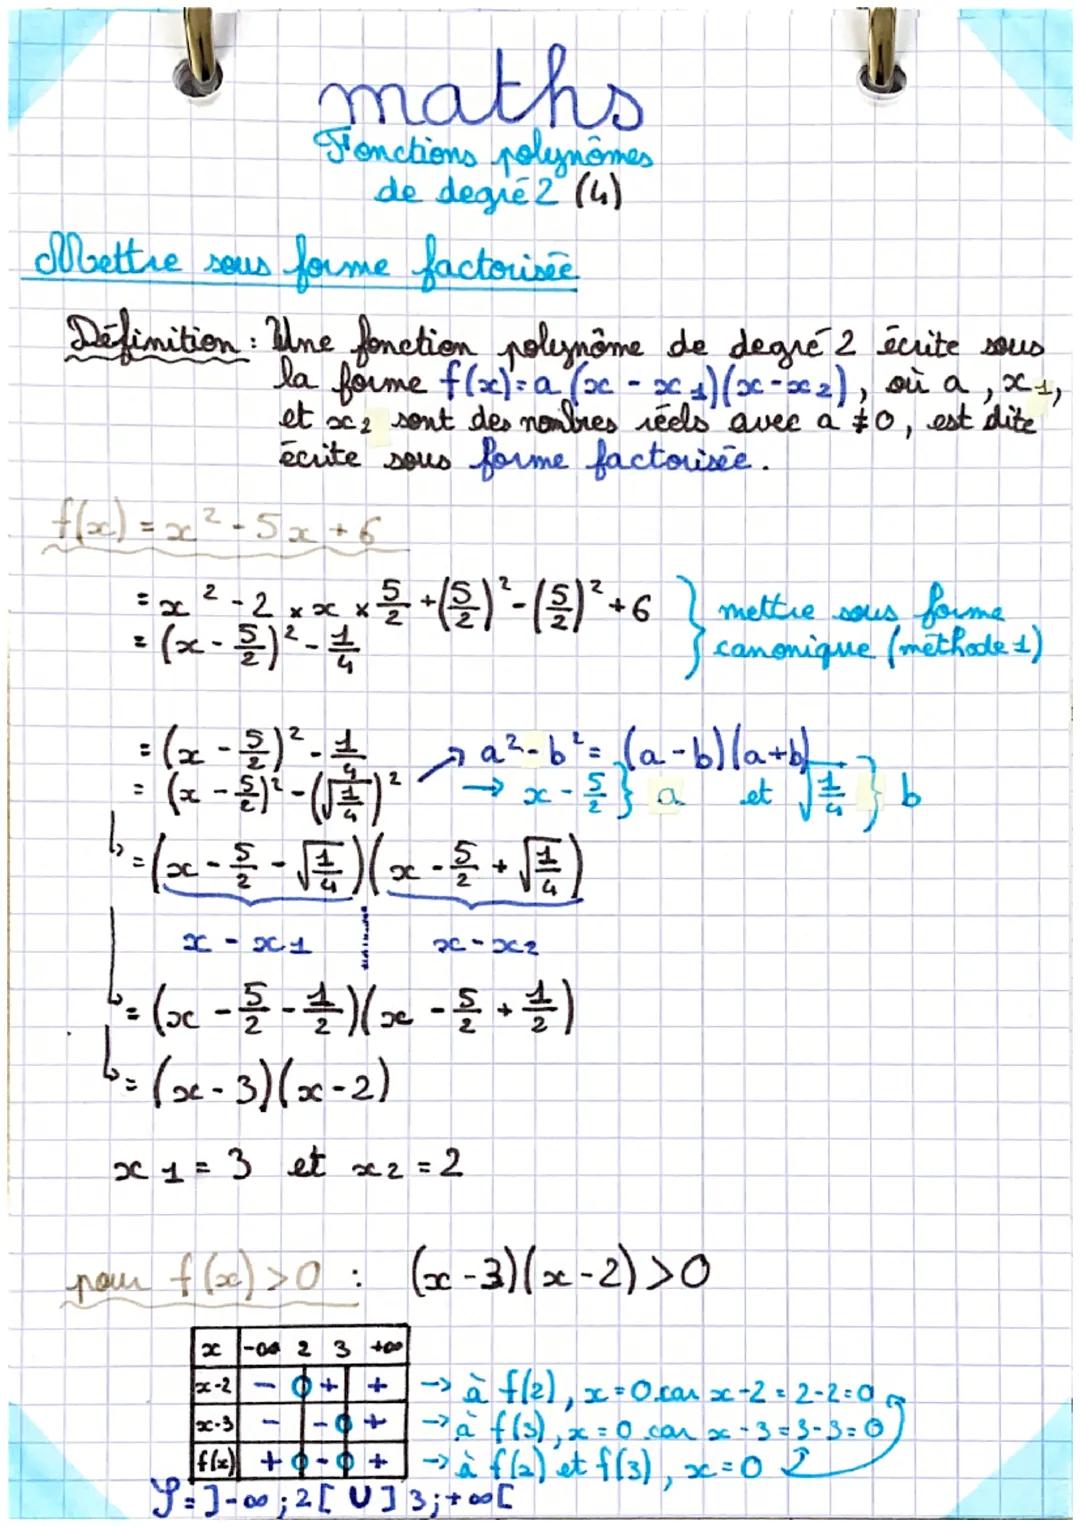 maths
Fonctions polynômes
de degré 2 (4)
Mettre sous forme factorisée
Définition : Une fonction polynôme de degré 2 écrite sous
la forme f(x) = a (x - x1)(x - x2), où a, x1,
et x2 sont des nombres réels avec a ≠ 0, est dite
écrite sous forme factorisée.
f(x) = x² - 5x + 6
= x² - 2 × x × 5/2 + (5/2)² - (5/2)² + 6 } mettre sous forme
= (x - 5/2)² - 1/4 canonique (méthode 1)
= (x - 5/2)² - 1/4 → a² - b² = (a - b)(a + b)
= (x - 5/2)² - (√1/4)² → x - 5/2 } a et √1/4 } b
↳ = (x - 5/2 - √1/4)(x - 5/2 + √1/4)
x - x1 x - x2
↳ = (x - 5/2 - 1/2)(x - 5/2 + 1/2)
↳ = (x - 3)(x - 2)
x1 = 3 et x2 = 2
pour f(x) > 0 : (x - 3)(x - 2) > 0
x -∞ 2 3 +∞
x-2 - 0 + + → à f(2), x = 0 car x - 2 = 2 - 2 = 0
x-3 - - 0 + → à f(3), x = 0 car x - 3 = 3 - 3 = 0
f(x) + 0 - 0 + → à f(2) et f(3), x = 0
S = ]-∞ ; 2[ U ]3 ; +∞[